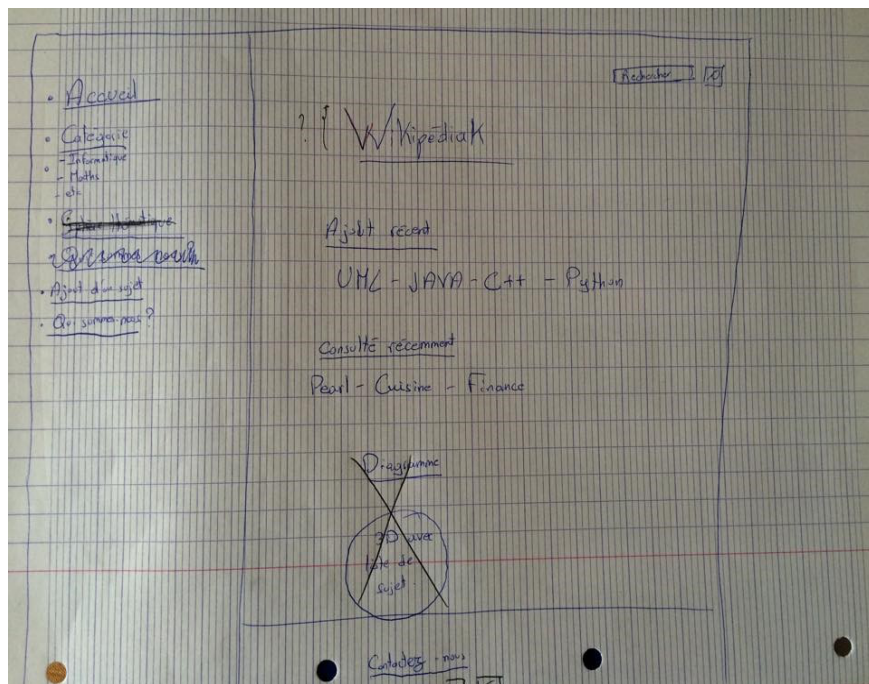 Accueil
Catégorie
- Informatique
- Maths
- etc
Ajout d'un sujet
Qui sommes-nous ?
Rechercher
? { WikipédiaK
Ajout récent
UML - JAVA - C++ - Python
Consulté récemment
Pearl - Cuisine - Finance
Diagramme
3D avec
liste de
sujet
Contactez-nous